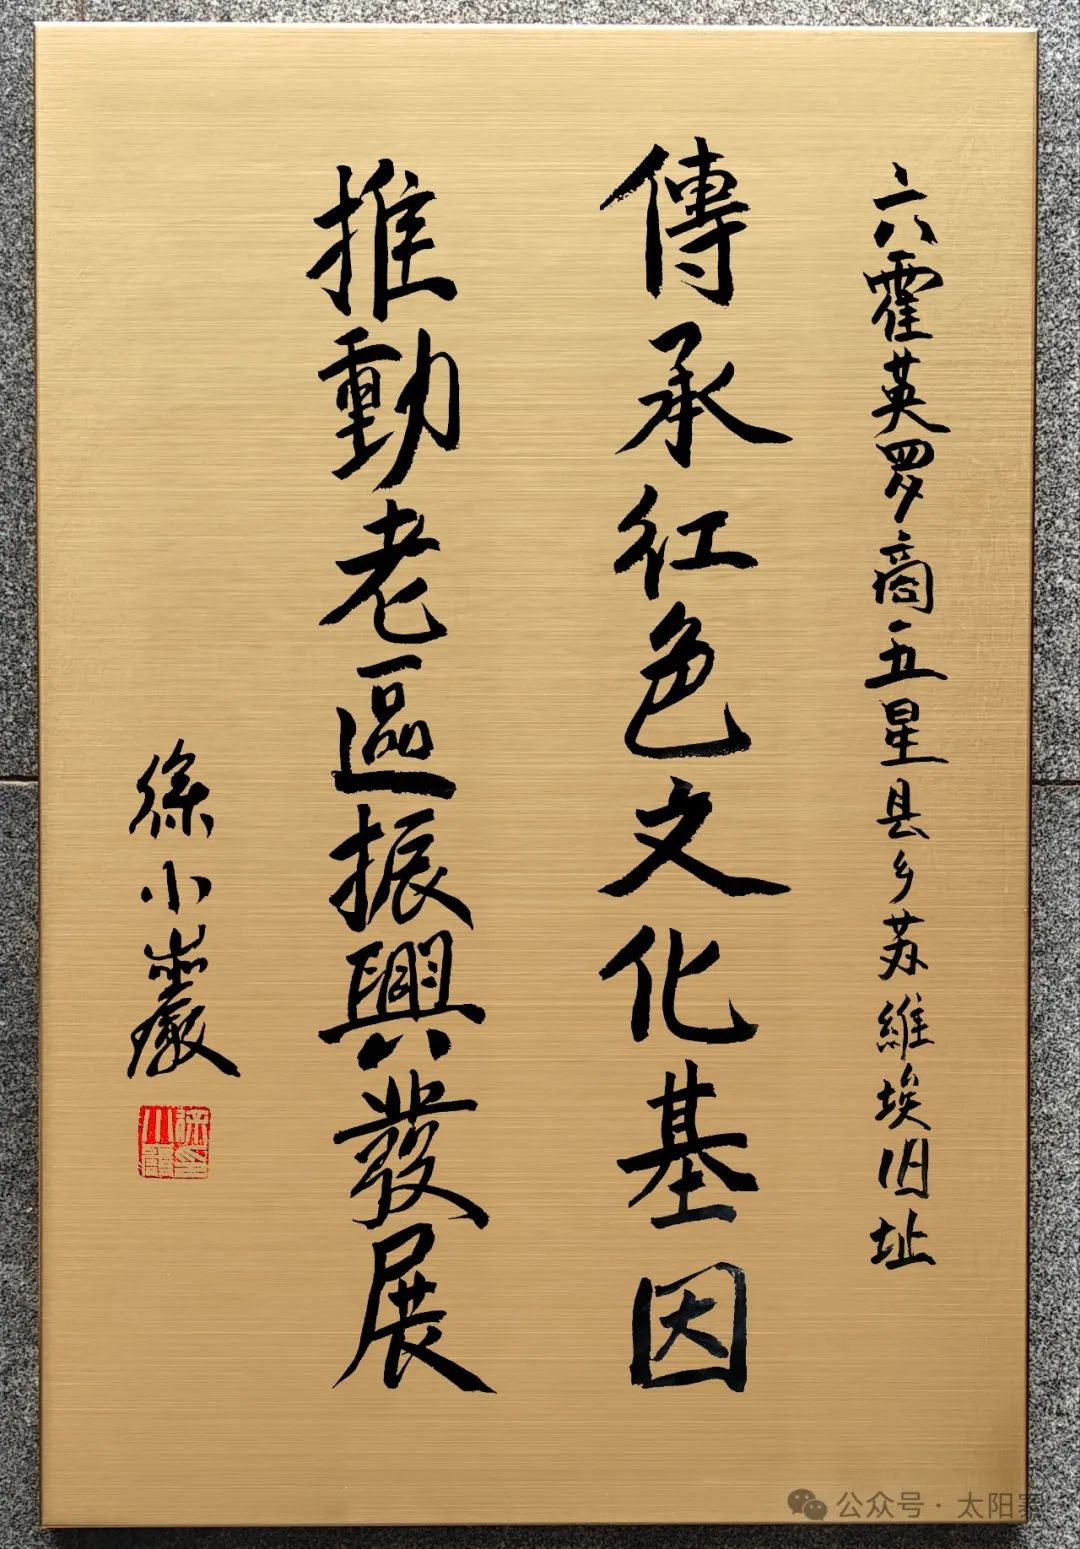 六霍英罗商五星县乡苏維埃旧址
傳承红色文化基因
推動老區振興發展
徐小巖
公众号·太阳寨